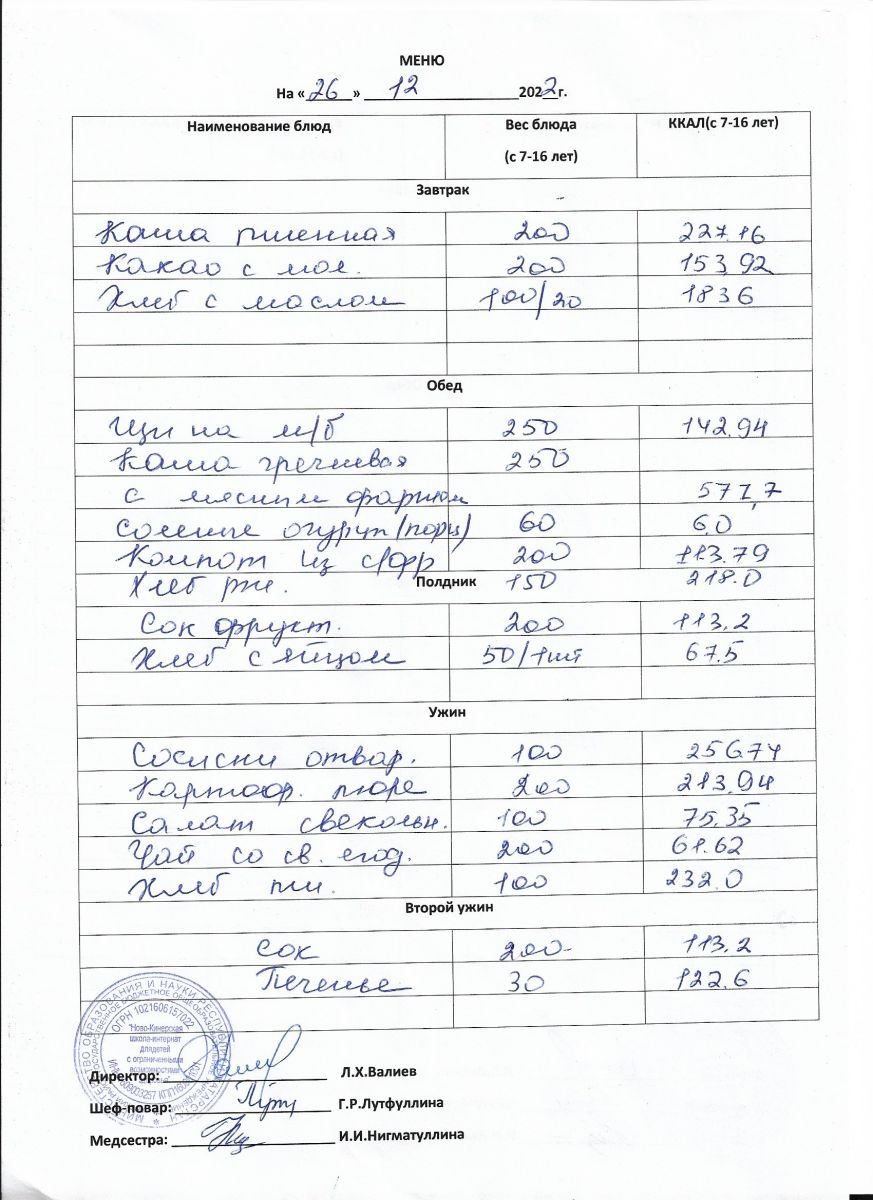 МЕНЮ
На «26» 12 2022г.
Наименование блюд Вес блюда ККАЛ(с 7-16 лет)
(с 7-16 лет)
Завтрак
Каша пшенная 200 227.16
Какао с мол. 200 153,92
Хлеб с маслом 100/20 183 6
Обед
Щи на м/б 250 142.94
Каша гречневая 250
с мясным фаршом 577,7
Соленые огурцы (порц) 60 6,0
Компот из с/фр 200 113.79
Хлеб рж. Полдник 150 218.0
Сок фрукт. 200 113,2
Хлеб с яйцом 50/1шт 67.5
Ужин
Сосиски отвар. 100 256.74
Картоф. пюре 200 213,94
Салат свекольн. 100 75,35
Чай со св. ягод. 200 61.62
Хлеб пш. 100 232.0
Второй ужин
Сок 200 113.2
Печенье 30 122.6
ОГРН 1021606157022
"Ново-Кинерская
школа-интернат
для детей
с ограниченными
возможностями
Директор: Л.Х.Валиев
Шеф-повар: Г.Р.Лутфуллина
Медсестра: И.И.Нигматуллина